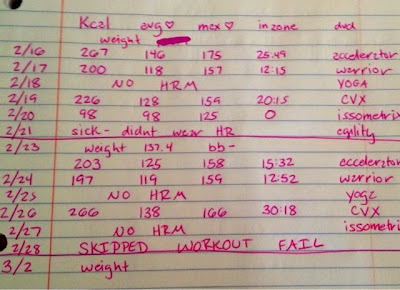 Kcal avg♡ max♡ in zone dvd
weight
2/16 267 146 175 25:49 accelerator
2/17 200 118 157 12:15 warrior
2/18 NO HRM YOGA
2/19 226 128 159 20:15 CVX
2/20 98 98 125 0 issometrix
2/21 sick- didnt wear HR agility
2/23 weight 137.4 bb-
203 125 158 15:32 accelerator
2/24 197 119 159 12:52 warrior
2/25 NO HRM yoga
2/26 266 138 166 30:18 CVX
2/27 NO HRM issometrix
2/28 SKIPPED WORKOUT FAIL
3/2 weight